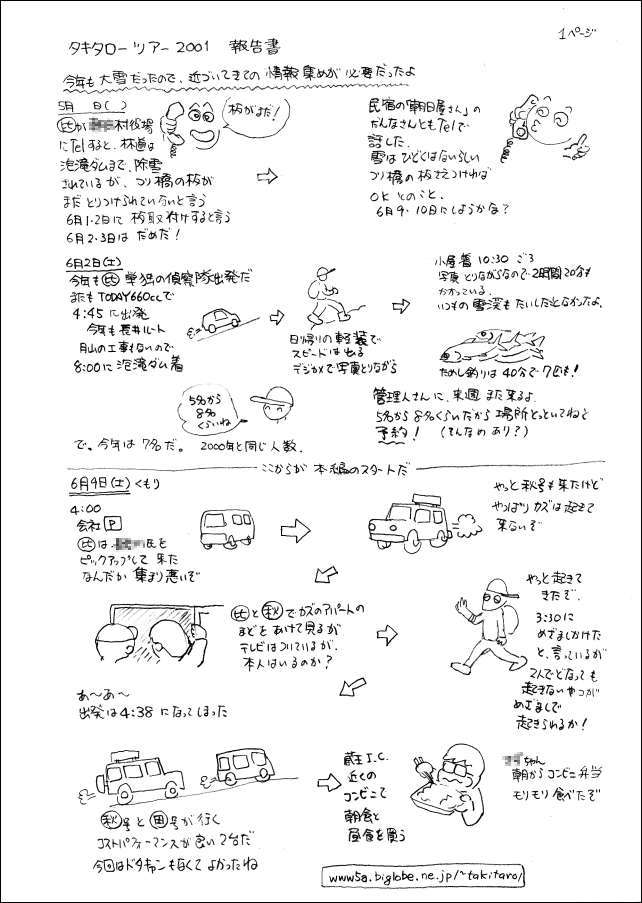 タキタローツアー2001 報告書
1ページ
今年も大雪だったので、近づいてきての情報集めが必要だったよ
5月 日( )
㊗が 村役場
にTelすると、林道は
泡滝ダムまで、除雪
されているが、つり橋の板が
まだとりつけられていないと言う
6月1・2日に板取付けすると言う
6月2・3日はだめだ!
板がまだ!
民宿の「朝日屋さん」の
だんなさんともTelで
話した.
雪はひどくはないらしい
つり橋の板さえつければ
OKとのこと.
6月9・10日にしようかな?
6月2日(土)
今年も㊗単独の偵察隊出発だ
またもTODAY660ccで
4:45に出発
今年も長井ルート
月山の工事もないので
8:00に泡滝ダム着
日帰りの軽装で
スピードは出る
デジカメで写真とりながら
小屋着10:30ごろ
写真とりながらなので2時間20分も
かかっている.
いつもの雪渓もたいしたことなかったよ.
ためし釣りは40分で7匹も!
5名から
8名
くらいね
管理人さんに、来週また来るよ
5名から8名くらいだから場所とっといてねと
予約! (そんなのあり?)
で、今年は7名だ. 2000年と同じ人数.
ここからが本編のスタートだ
6月9日(土)くもり
4:00
会社P
は 氏を
ピックアップして来た
なんだか集まり悪いぞ
やっと秋号も来たけど
やっぱりカズは起きて
来ないぞ
と秋でカズのアパートの
まどをあけて見るが
テレビはついているが、
本人はいるのか?
やっと起きて
きたぞ.
3:30に
めざましかけた
と、言っているが
2んでどなっても
起きないやつが
めざましで
起きられるか!
あ〜あ〜
出発は4:38になってしまった
秋号と田号が行く
コストパフォーマンスが良い2台だ
今回はドタキャンもなくてよかったね
蔵王I.C.
近くの
コンビニで
朝食と
昼食を買う
ちゃん
朝からコンビニ弁当
モリモリ食べたぞ
www5a.biglobe.ne.jp/~takitaro/